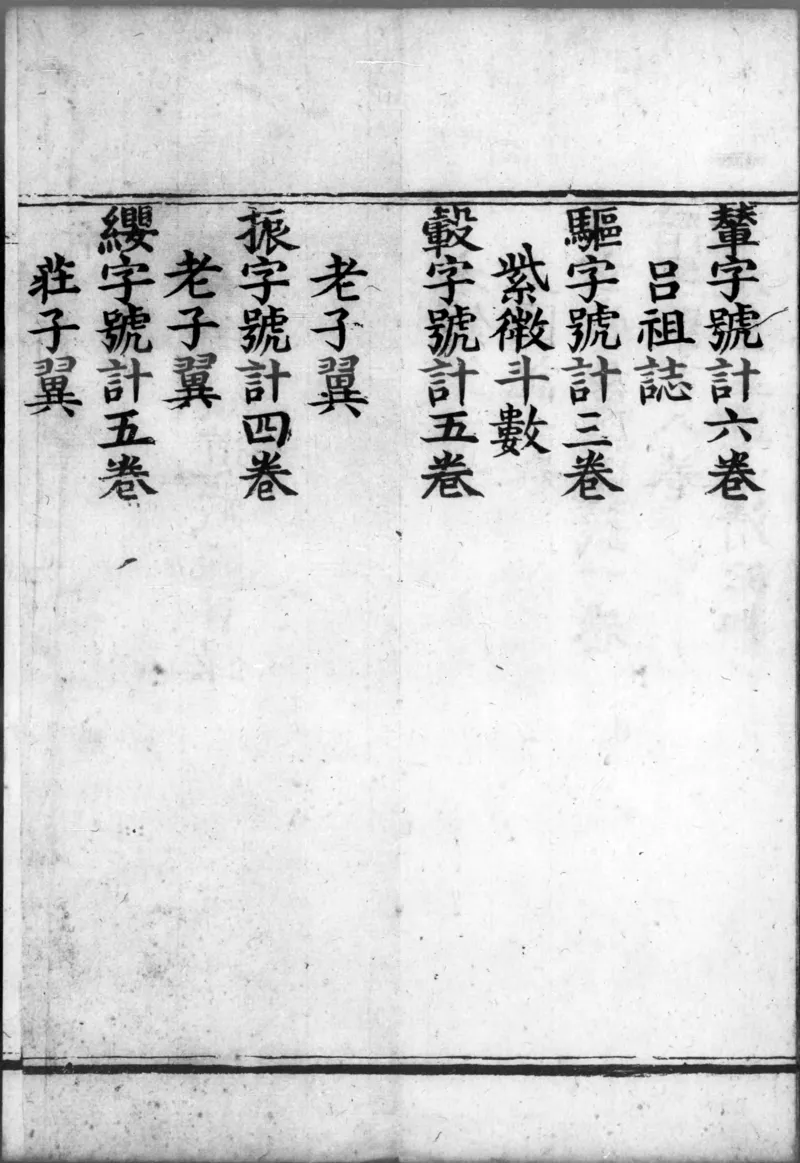 輦字號計六卷
呂祖誌
驅字號計三卷
紫微斗數
轂字號計五卷
老子翼
振字號計四卷
老子翼
纓字號計五卷
莊子翼